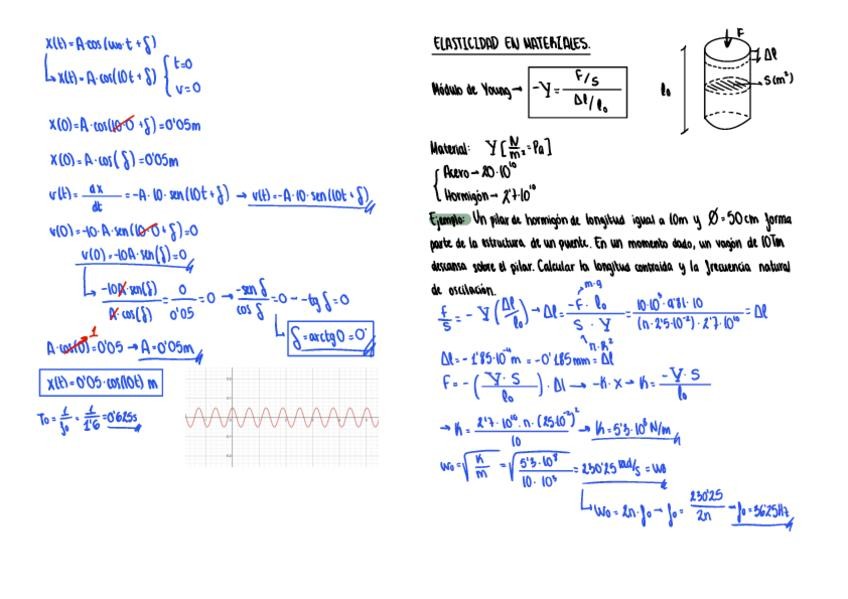 x(t)=A·cos(ω₀·t+δ)
x(t)=A·cos(10t+δ) { t=0 v=0
x(0)=A·cos(10·0+δ)=0'05m
x(0)=A·cos(δ)=0'05m
v(t)=dx/dt=-A·10·sen(10t+δ) → v(t)=-A·10·sen(10t+δ)
v(0)=-10·A·sen(10·0+δ)=0
v(0)=-10A·sen(δ)=0
-10A·sen(δ)/A·cos(δ)=0/0'05=0 → -sen δ/cos δ=0 → -tg δ=0
δ=arctg 0=0
A·cos(0)=0'05 → A=0'05m
1
x(t)=0'05·cos(10t) m
T₀=1/f₀=1/1'6=0'625s
ELASTICIDAD EN MATERIALES.
Módulo de Young → -Y=F/S / Δl/l₀
F
Δl
S(m²)
l₀
Material: Y[N/m²=Pa]
Acero → 20·10¹⁰
Hormigón → 2'7·10¹⁰
Ejemplo: Un pilar de hormigón de longitud igual a 10m y Ø=50cm forma
parte de la estructura de un puente. En un momento dado, un vagón de 10Tm
descansa sobre el pilar. Calcular la longitud contraida y la frecuencia natural
de oscilación.
m·g
F/S=-Y(Δl/l₀) → Δl=-F·l₀/S·Y=10·10³·9'81·10/(π·2'5·10⁻²)·2'7·10¹⁰=Δl
π·R²
Δl=-1'85·10⁻⁴m=-0'185mm=Δl
F=-(Y·S/l₀)·Δl → -K·x → K=-Y·S/l₀
→ K=2'7·10¹⁰·π·(25·10⁻²)²/10 → K=5'3·10⁸N/m
ω₀=√K/m=√5'3·10⁸/10·10³=230'25 rad/s=ω₀
ω₀=2π·f₀ → f₀=230'25/2π → f₀=36'25Hz